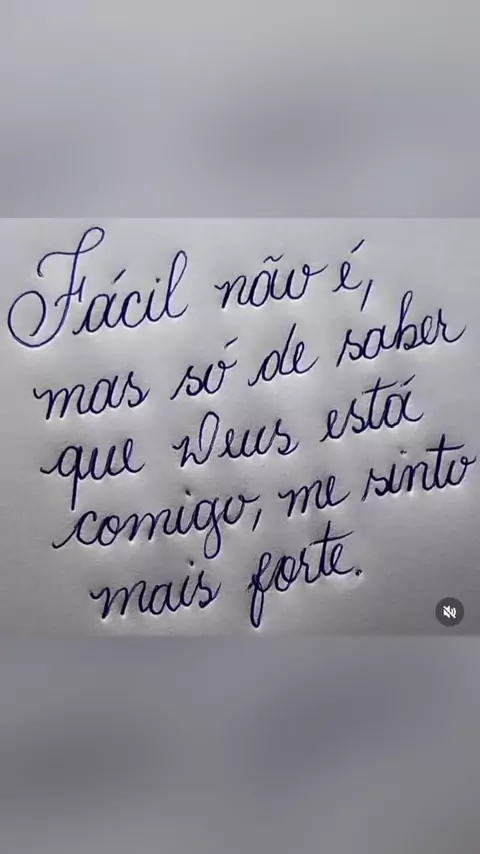 Fácil não é,
mas só de saber
que Deus está
comigo, me sinto
mais forte.